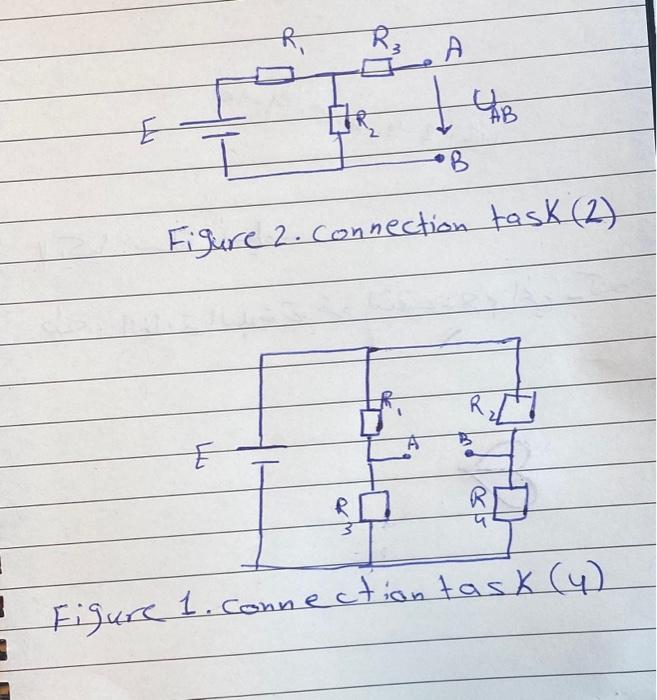 R1
R3
A
E
R2
UAB
B
Figure 2. Connection task (2)
R1
R2
E
A
B
R3
R4
Figure 1. Connection task (4)